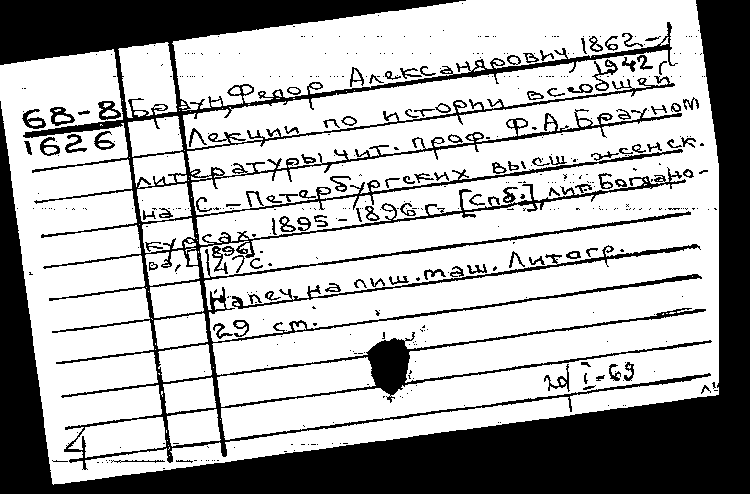 68-8
1626
Браун, Федор Александрович, 1862-
1942
Лекции по истории всеобщей
литературы, чит. проф. Ф.А. Брауном
на С.-Петербургских высш. женск.
курсах. 1895-1896 г. [Спб.], лит. Богдано-
ва, [1896]
147 с.
Напеч. на пиш. маш. Литогр.
29 см.
20/I-69
4